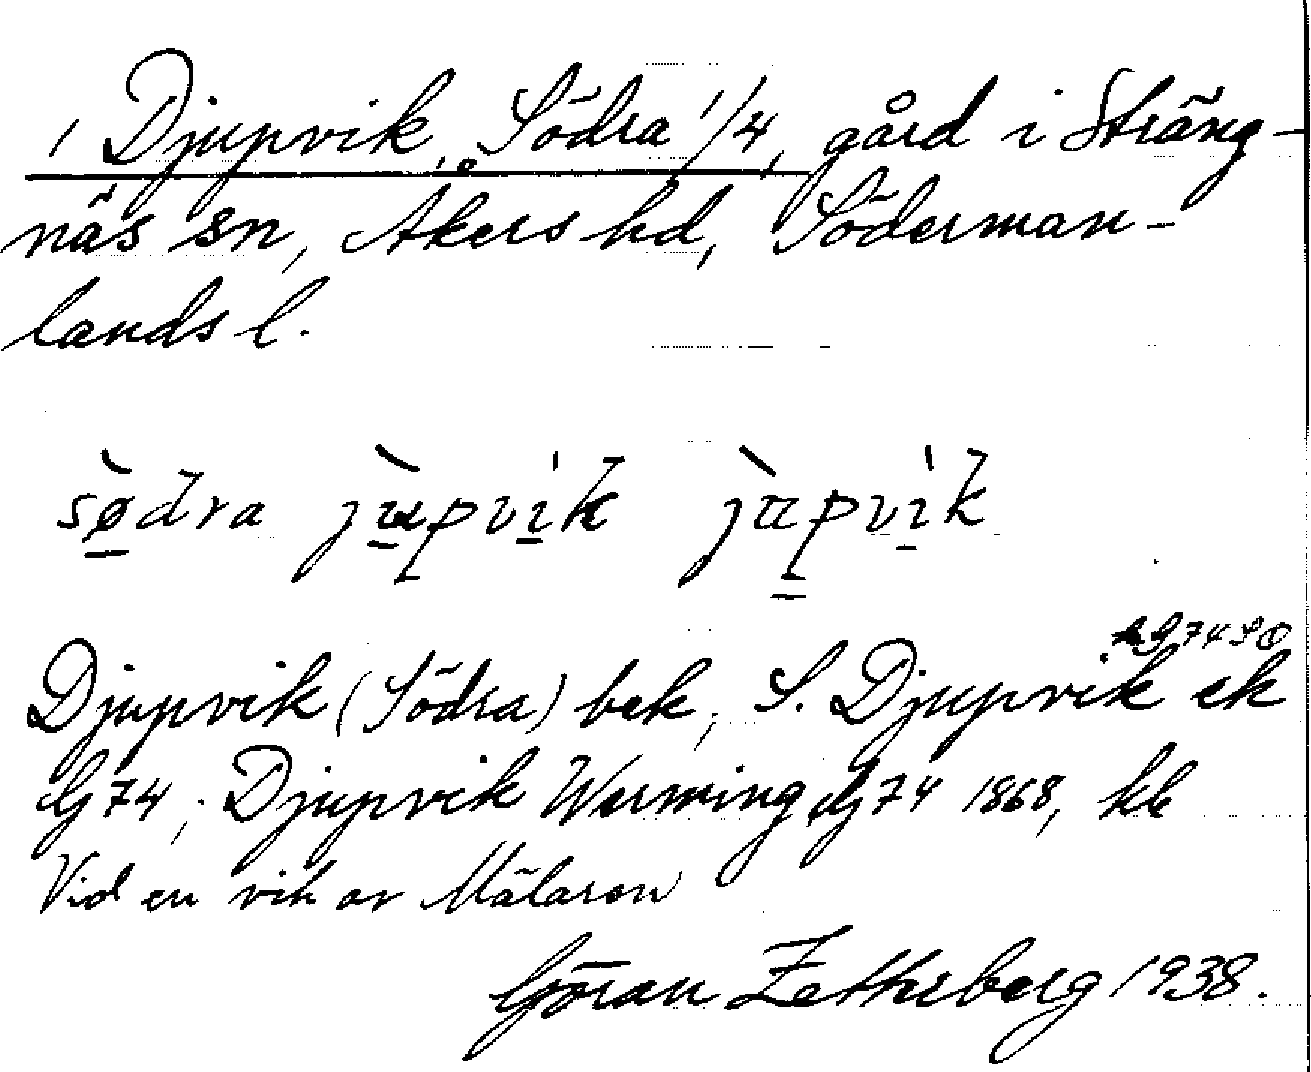 1 Djupvik, Södra 1/4, gård i Sträng-
näs sn, Åkers hd, Söderman-
lands l.
sø̀dra jùpvík jùpvík
74 SO
Djupvik (Södra) bek, S. Djupvik ek
G 74; Djupvik Werming G 74 1868, kb
Vid en vik av Mälaren
Göran Zethrberg 1938.